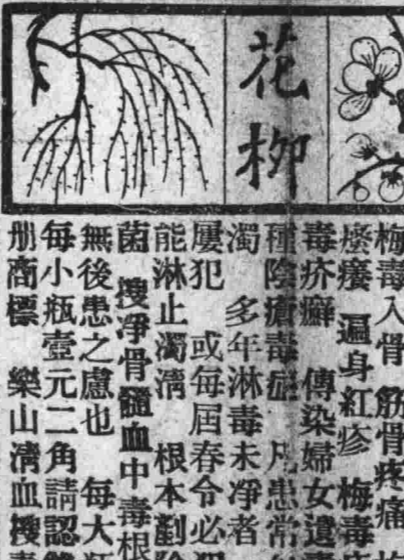 花柳
梅毒入骨 筋骨疼痛
瘰癧 遍身紅疹 梅毒
毒疥癬 傳染婦女遺
種陰瘡毒症 凡患常
濁 多年淋毒未凈者
屢犯 或每屆春令必
能淋止濁淸 根本剷除
菌 搜淨骨髓血中毒根
無後患之慮也 每大瓶
每小瓶壹元二角請認
册商標 樂山淸血搜毒